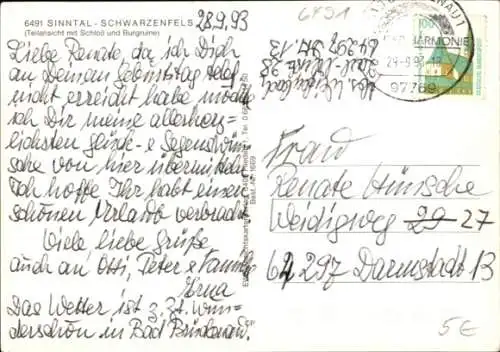 6491 SINNTAL - SCHWARZENFELS
(Teilansicht mit Schloß und Burgruine)
28.9.93
Liebe Renate, da ich Dich
an Deinem Geburtstag telef.
nicht erreicht habe möchte
ich Dir meine allerherz-
lichsten Glück- & Segenswün-
sche von hier übermitteln
Ich hoffe Ihr habt einen
schönen Urlaub verbracht.
Viele liebe Grüße
auch an Otti, Peter & Familie
Erna
Das Wetter ist z. Zt. wun-
derschön in Bad Brückenau.
6491
64297
HARMONIE
97769
100
Frau
Renate Hünsche
Weidigweg 29 27
64297 Darmstadt 13
5€